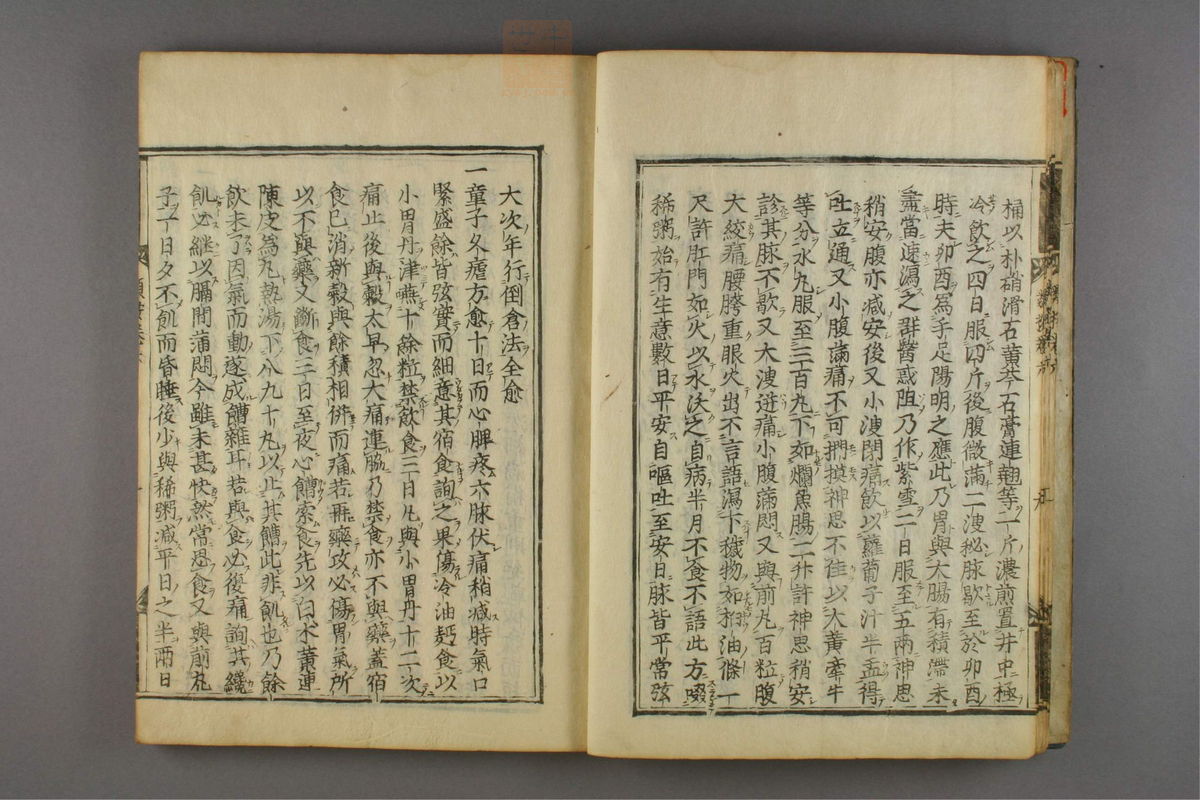 桶以朴硝滑石黄芩石膏連翹等一斤濃煎置井中極
冷飲之四日服四斤後腹微滿二溲秘脉歇至於卯酉
時夫卯酉爲手足陽明之應此乃胃與大腸有積滯未
盡當速瀉之群醫惑阻乃作紫雪二日服至五兩神思
稍安腹亦减安後又小溲閉痛飲以蘿蔔子汁半盂得
吐立通又小腹滿痛不可捫摸神思不佳以大黄牽牛
等分水丸服至三百丸下如爛魚腸二升許神思稍安
診其脉不歇又大溲迸痛小腹滿悶又與前丸百粒腹
大絞痛腰胯重眼火出不言語瀉下穢物如柏油條一
尺許肛門如火以水沃之自病半月不食不語此方啜
稀粥始有生意數日平安自嘔吐至安日脉皆平常弦
大次年行倒倉法全愈
一童子久瘧方愈十日而心脾疼六脉伏痛稍减時氣口
緊盛餘皆弦實而細意其宿食詢之果傷冷油麪食以
小胃丹津嚥十餘粒禁飲食三日凡與小胃丹十二次
痛止後與穀太早忽大痛連脇乃禁食亦不與藥蓋宿
食已消新穀與餘積相併而痛若再藥攻必傷胃氣所
以不與藥又斷食三日至夜心饂索食先以白朮黄連
陳皮爲丸熱湯下八九十丸以止其饂此非飢也乃餘
飲未了因氣而動遂成饂雜耳若與食必復痛詢其纔
飢必繼以膈間滿悶今雖未甚快然常思食又與前丸
子一日夕不飢而昏睡後少與稀粥减平日之半兩日